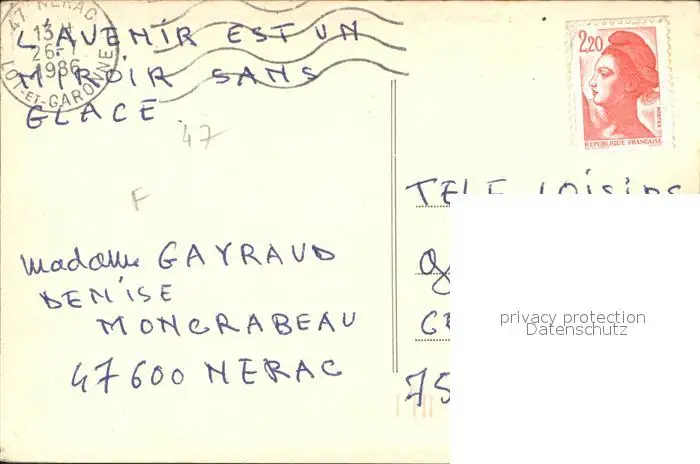 47 NERAC
13 H
26
1986
LOT-ET-GARONNE
L'AVENIR EST UN
MIROIR SANS
GLACE
47
F
madame GAYRAUD
DENISE
MONCRABEAU
47600 NERAC
2,20
POSTES
REPUBLIQUE FRANCAISE
TELE LOISIRS
75
privacy protection
Datenschutz